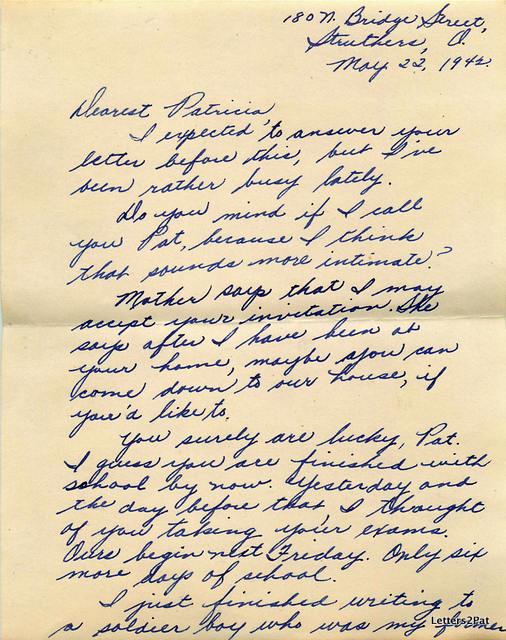 180 N. Bridge Street,
Struthers, O.
May 22, 1942.
Dearest Patricia,
I expected to answer your
letter before this, but I've
been rather busy lately.
Do you mind if I call
you Pat, because I think
that sounds more intimate?
Mother says that I may
accept your invitation. She
says after I have been at
your home, maybe you can
come down to our house, if
you'd like to.
You surely are lucky, Pat.
I guess you are finished with
school by now. Yesterday and
the day before that, I thought
of you taking your exams.
Ours begin next Friday. Only six
more days of school.
I just finished writing to
a soldier boy who was my former
Letters2Pat